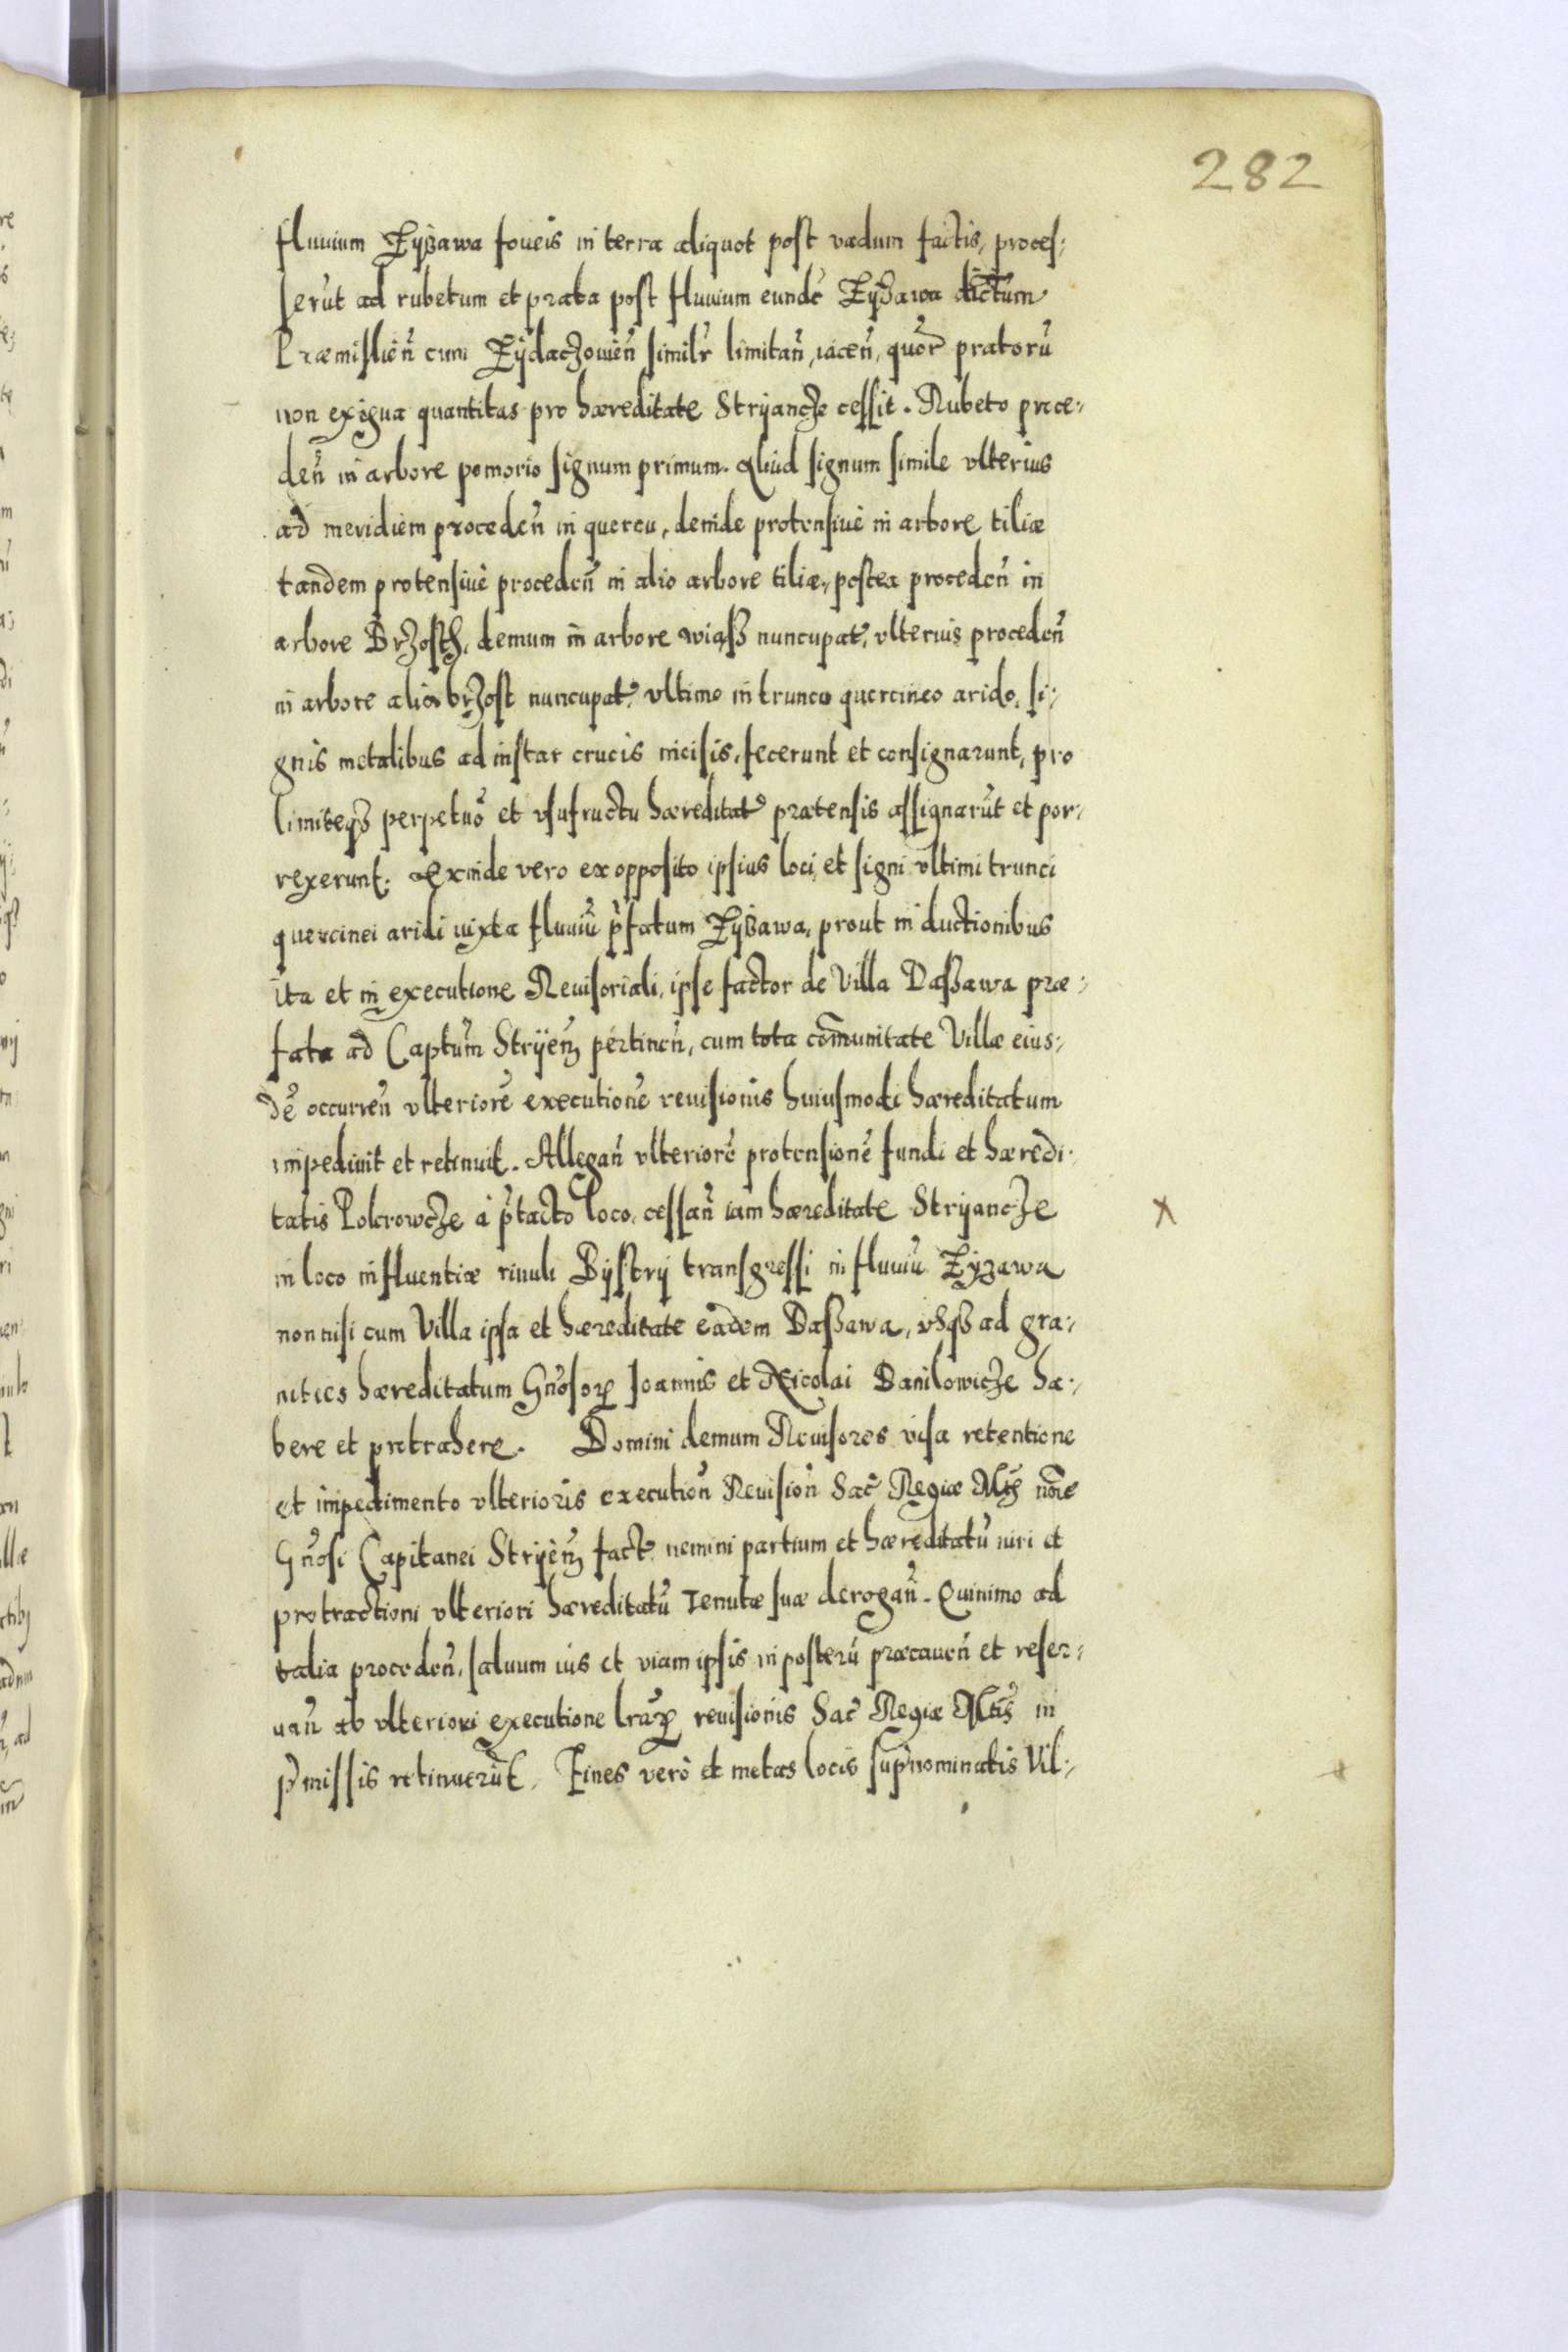 282
fluuium Zyʒawa foueis in terra aliquot post vadum factis, proces-
serūt ad rubetum et prata post fluuium eundē Zyʒawa dictum
Præmislień cum Zÿdaczowień similr̃ limitań, iaceń, quor̃ pratorū
non exigua quantitas pro hæreditate Strÿancze cessit. Rubeto proce-
deń in arbore pomorio signum primum. Aliud signum simile vlterius
ad meridiem procedeń in quercu, deinde protensiuè in arbore tiliæ
tandem protensiuè procedeń in alio arbore tiliæ, postea procedeń in
arbore Brzosth, demum in arbore wiąsz nuncupat̃, vlterius procedeń
in arbore alia brzost nuncupat̃, vltimo in trunco quercineo arido, si-
gnis metalibus ad instar crucis incisis, fecerunt et consignarunt, pro
limiteqʒ perpetuo et vsufructu hæreditat̃ prætensis assignarūt et por-
rexerunt. Exinde vero ex opposito ipsius loci, et signi vltimi trunci
quercinei aridi iuxta fluuiū p̃fatum Zyʒawa, prout in ductionibus
ita et in executione Reuisoriali, ipse factor de Villa Daszawa præ-
fata ad Captum̃ Strÿeń pertineń, cum tota com̃unitate Villæ eius-
dē occurreń vlteriorē executionē reuisionis huiusmodi hæreditatum
impediuit et retinuit. Allegań vlteriorē protensionē fundi et hæredi-
tatis Pokrowcze à p̃tacto loco, cessań iam hæreditate Strÿancze
in loco influentiæ riuuli Bÿstrÿ transgressi in fluuiū Zyzawa
non nisi cum Villa ipsa et hæreditate eadem Daszawa, vsqʒ ad gra-
nities hæreditatum Gnõsoꝝ Joannis et Nicolai Danilowicze ha-
bere et protrahere. Domini demum Reuisores visa retentione
et impedimento vlterioris execution̄ Reuision̄ Sac̃ Regiæ Mtis nõie
Gnõsi Capitanei Strÿeń fact̃ nemini partium et hæreditatū iuri et
protractioni vlteriori hæreditatū Tenutæ suæ derogań. Quinimo ad
talia procedeń, saluum ius et viam ipsis in posterū præcaueń et reser-
uań ab vlteriori executione lr̃aꝝ reuisionis Sac̃ Regiæ Mtis in
p̃missis retinuerūt. Fines verò et metas locis sup̃nominatis Vil-